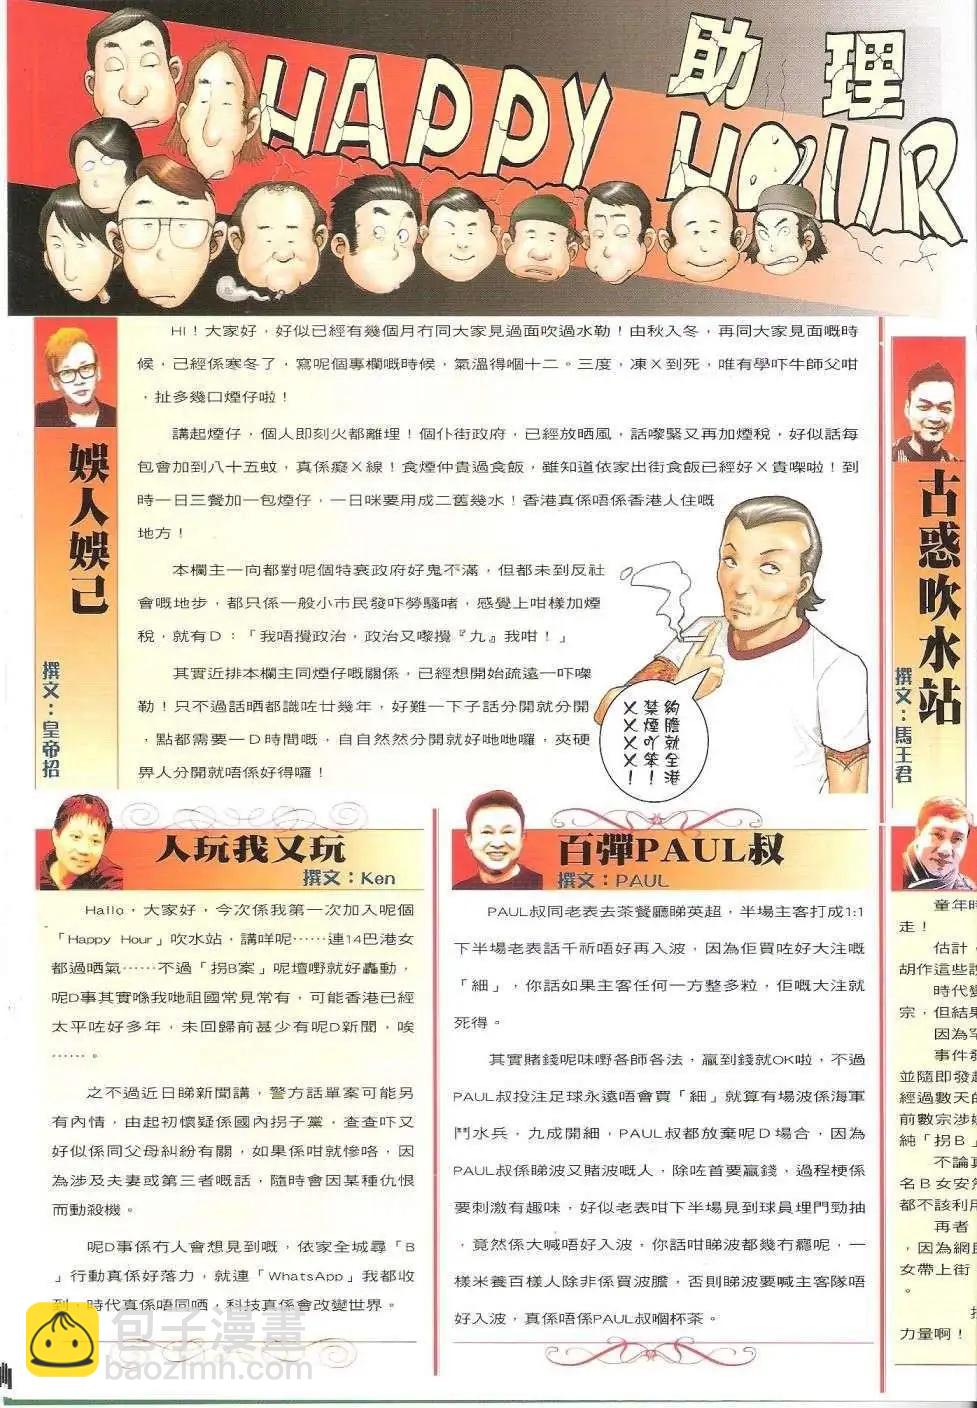 助理
HAPPY HOUR
娛人娛己
撰文：皇帝招
HI！大家好，好似已經有幾個月冇同大家見過面吹過水勒！由秋入冬，再同大家見面嘅時
候，己經係寒冬了，寫呢個專欄嘅時候，氣溫得嗰十二。三度，凍X到死，唯有學吓牛師父咁
，扯多幾口煙仔啦！
講起煙仔，個人即刻火都離埋！個仆街政府，已經放晒風，話嚟緊又再加煙稅，好似話每
包會加到八十五蚊，真係癡X線！食煙仲貴過食飯，雖知道依家出街食飯已經好X貴㗎啦！到
時一日三餐加一包煙仔，一日咪要用成二舊幾水！香港真係唔係香港人住嘅
地方！
本欄主一向都對呢個特衰政府好鬼不滿，但都未到反社
會嘅地步，都只係一般小市民發吓勞騷啫，感覺上咁樣加煙
稅，就有D：「我唔攪政治，政治又嚟攪『九』我咁！」
其實近排本欄主同煙仔嘅關係，已經想開始疏遠一吓㗎
勒！只不過話晒都識咗廿幾年，好難一下子話分開就分開
，點都需要一D時間嘅，自自然然分開就好哋哋囉，夾硬
畀人分開就唔係好得囉！
夠膽就全港
禁煙吖笨！
XXXX！
古惑吹水站
撰文：馬王君
人玩我又玩
撰文：Ken
Hallo，大家好，今次係我第一次加入呢個
「Happy Hour」吹水站，講咩呢……連14巴港女
都過晒氣……不過「拐B案」呢壇嘢就好轟動，
呢D事其實喺我哋祖國常見常有，可能香港已經
太平咗好多年，未回歸前甚少有呢D新聞，唉
……。
之不過近日睇新聞講，警方話單案可能另
有內情，由起初懷疑係國內拐子黨，查查吓又
好似係同父母糾紛有關，如果係咁就慘咯，因
為涉及夫妻或第三者嘅話，隨時會因某種仇恨
而動殺機。
呢D事係冇人會想見到嘅，依家全城尋「B
」行動真係好落力，就連「WhatsApp」我都收
到，時代真係唔同哂，科技真係會改變世界。
百彈PAUL叔
撰文：PAUL
PAUL叔同老表去茶餐廳睇英超，半場主客打成1:1
下半場老表話千祈唔好再入波，因為佢買咗好大注嘅
「細」，你話如果主客任何一方整多粒，佢嘅大注就
死得。
其實賭錢呢味嘢各師各法，贏到錢就OK啦，不過
PAUL叔投注足球永遠唔會買「細」就算有場波係海軍
鬥水兵，九成開細，PAUL叔都放棄呢D場合，因為
PAUL叔係睇波又賭波嘅人，除咗首要贏錢，過程梗係
要刺激有趣味，好似老表咁下半場見到球員埋門勁抽
，竟然係大喊唔好入波，你話咁睇波都幾冇癮呢，一
樣米養百樣人除非係買波膽，否則睇波要喊主客隊唔
好入波，真係唔係PAUL叔嗰杯茶。
童年時
走！
估計，
胡作這些
時代變
宗，但結果
因為罕
事件發
並隨即發起
經過數天的
前數宗涉嫌
純「拐B」
不論真
名B女安然
都不該利用
再者，
，因為網民
女帶上街，
。
力量啊！
包子漫畫
baozimh.com